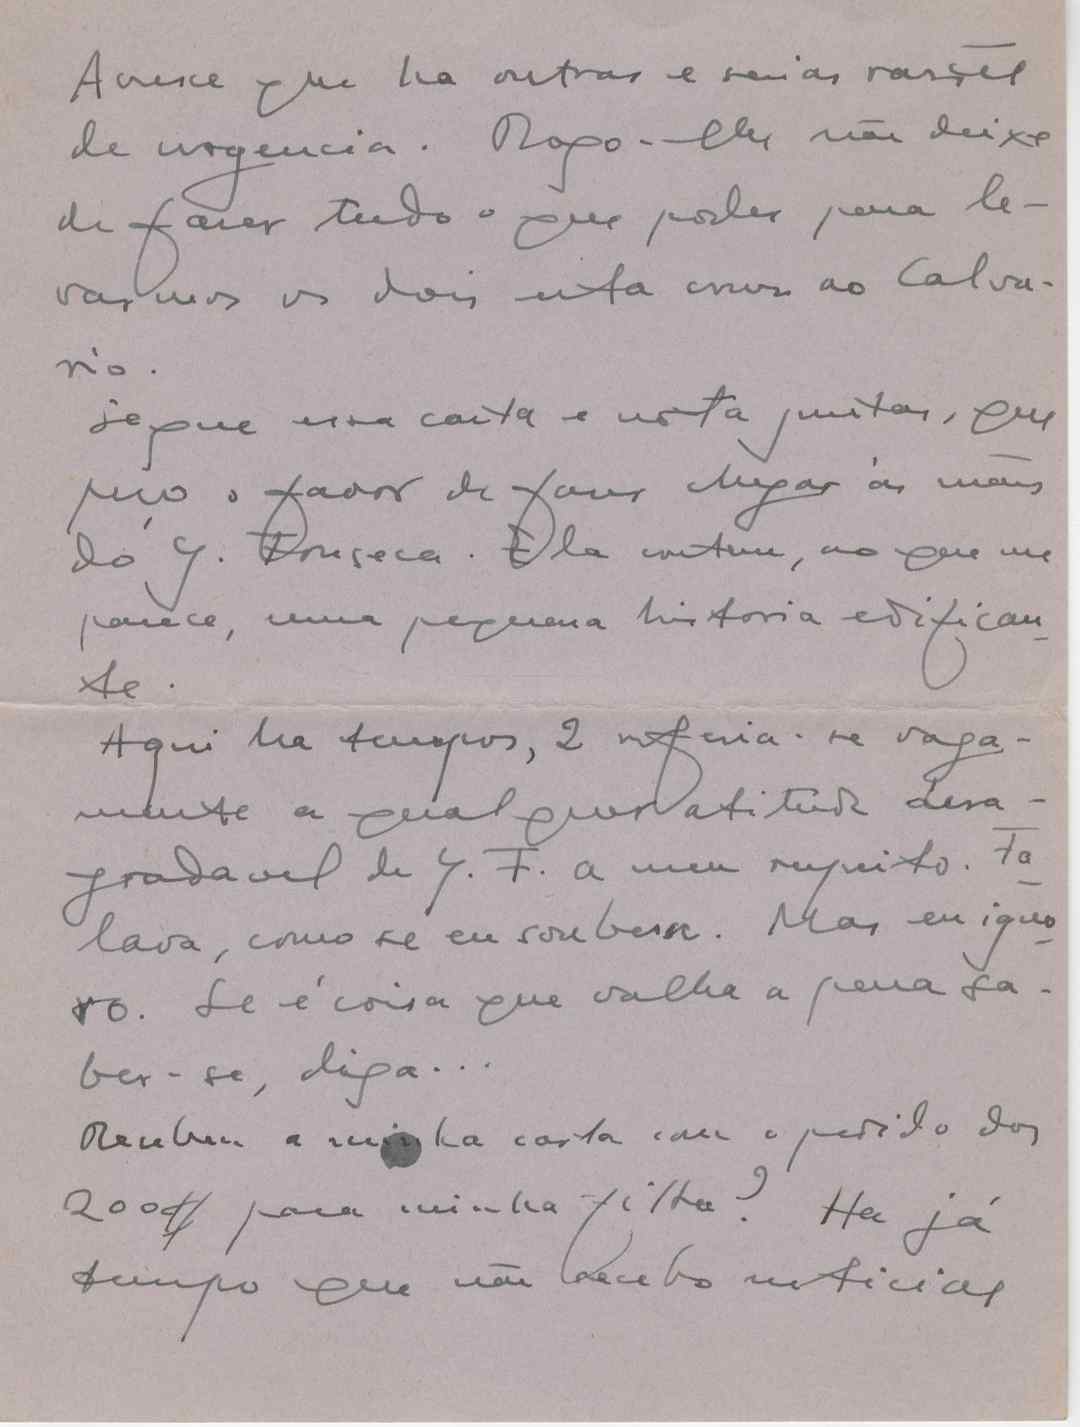 Acresce que ha outras e serias rasões
de urgencia. Rogo-lhe não deixe
de fazer tudo o que poder para le-
varmos os dois esta cruz ao Calva-
rio.
Segue essa carta e nota juntas, que
peço o favor de fazer chegar ás mãos
do Y. Fonseca. Ela contem, ao que me
parece, uma pequena historia edifican-
te.
Aqui ha tempos, V. referia-se vaga-
mente a qualquer atitude desa-
gradavel de Y. F. a meu respeito. Fa-
lava, como se eu soubesse. Mas eu igno-
ro. Se é coisa que valha a pena sa-
ber-se, diga...
Recebeu a minha carta com o pedido dos
200$ para minha filha? Ha já
tempo que não recebo noticias